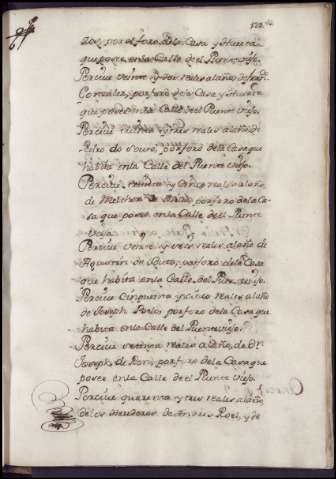 por el foro de la Casa y Huerta
que posee en la Calle de el Puente Viejo.
Percive veinte y dos reales al año, de
Gonzalez, por foro de la Casa y Huerta
que posee en la Calle del Puente viejo.
Percive treinta y tres reales al año de
Pedro do Souto, por foro de la Casa que
habita en la Calle del Puente Viejo.
Percive, veinte y cinco reales al año
de Melchor de por foro de la Ca-
sa que posee en la Calle de el Puente
Viejo.
Percive veinte y tres reales al año de
Agustin de Souto, por foro de la Casa
que habita en la Calle del Puente viejo.
Percive cinquenta y cinco reales al año
de Joseph por foro de la Casa que
habita en la Calle del Puente viejo.
Percive reales al año, de Dn.
Joseph de por foro de la Casa que
posee en la Calle de el Puente Viejo.
Percive quarenta y tres reales al año
de los herederos de Roel, y de